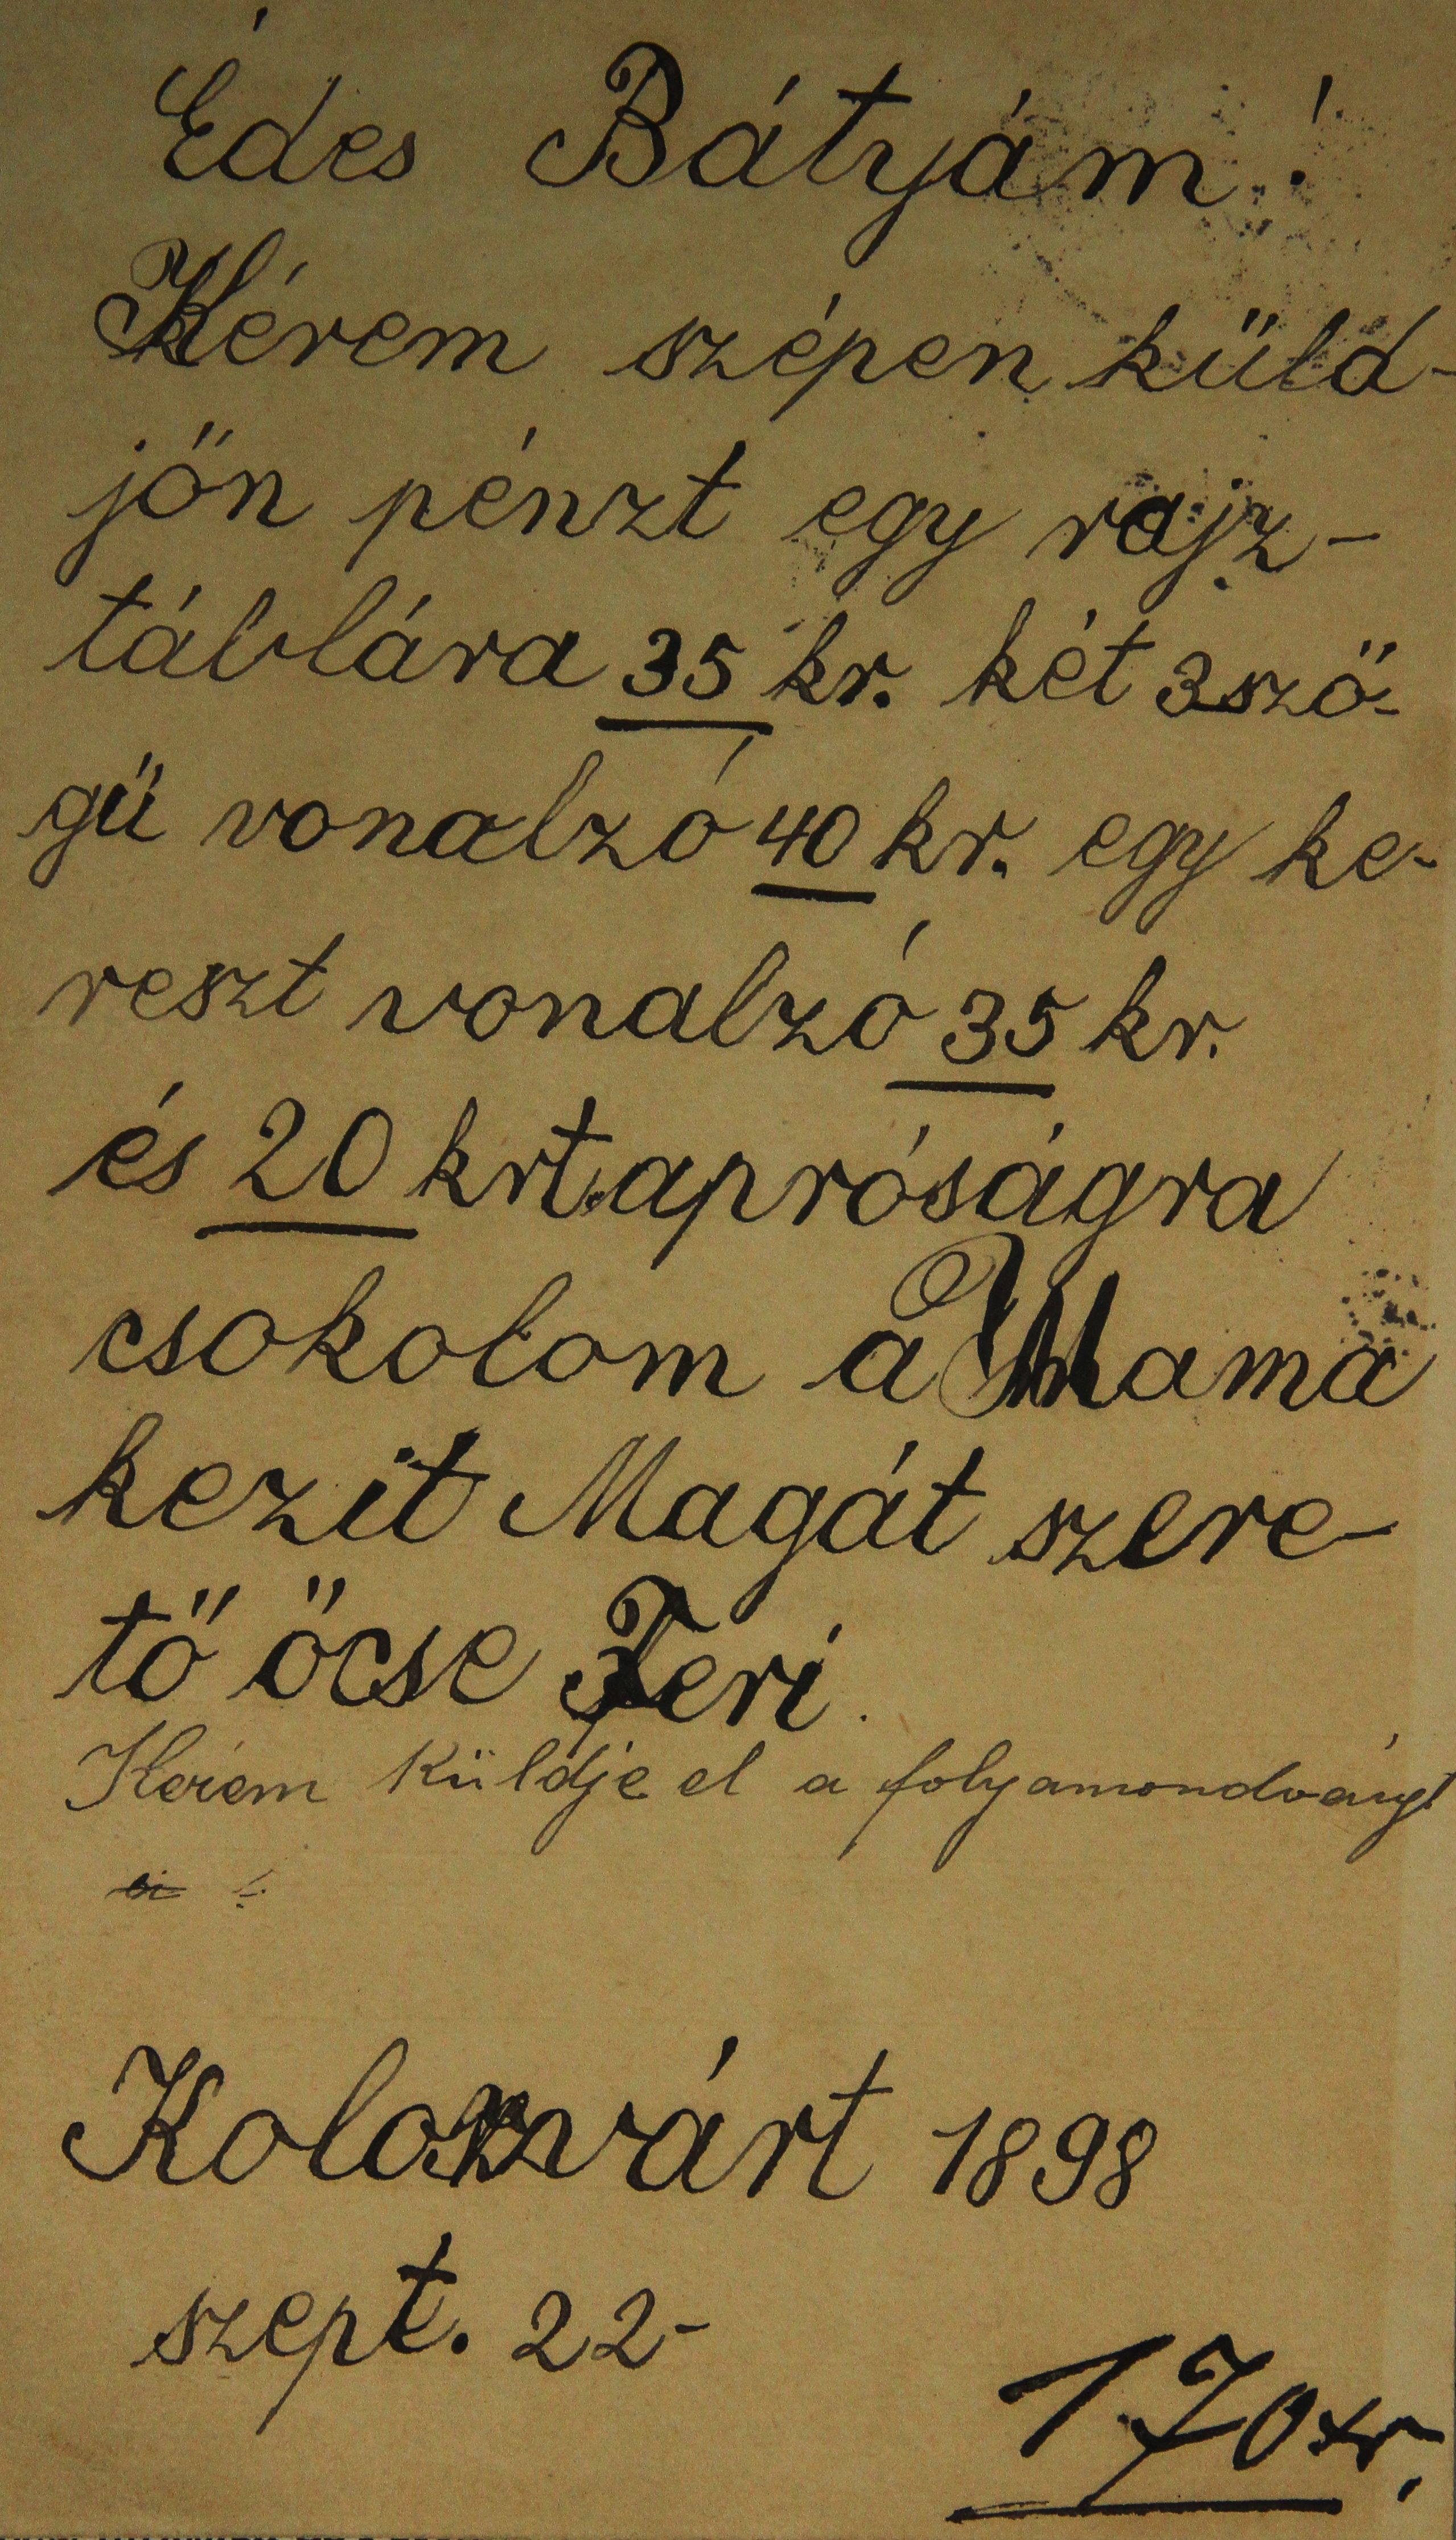 Édes Bátyám!
Kérem szépen küld-
jön pénzt egy rajz-
táblára 35 kr. két 3szö-
gü vonalzó 40 kr. egy ke-
reszt vonalzó 35 kr.
és 20 krt. apróságra
csokolom a Mama
kezit Magát szere-
tő öcse Feri.
Kérem küldje el a folyamondványt
Kolozsvárt 1898
szept. 22-
170 xr.